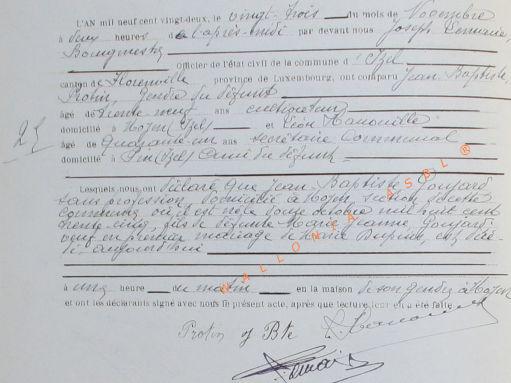 L'AN mil neuf cent vingt-deux, le vingt-trois du mois de Novembre
à deux heures, de l'après-midi par devant nous Joseph
Bourgmestre
Officier de l'état civil de la commune d'Izel
canton de Florenville province de Luxembourg, ont comparu Jean Baptiste
Protin, gendre du défunt
âgé de trente-neuf ans cultivateur
domicilié à Moyen (Izel) et Léon
25
âgé de Quarante-un ans secrétaire Communal
domicilié à Pin (Izel) ami du défunt
Lesquels nous ont déclaré que Jean-Baptiste Goujard
sans profession, domicilié à Moyen, section de cette
commune, où il est né le douze octobre mil huit cent
trente-cinq, fils de défunte Marie Jeanne Goujard
veuf en premier mariage de Marie est décé-
dé aujourd'hui
à onze heure du matin en la maison de son gendre à Moyen
et ont les déclarants signé avec nous le présent acte, après que lecture leur en a été faite.
Protin J Bte
WALLONIA ASBL ®